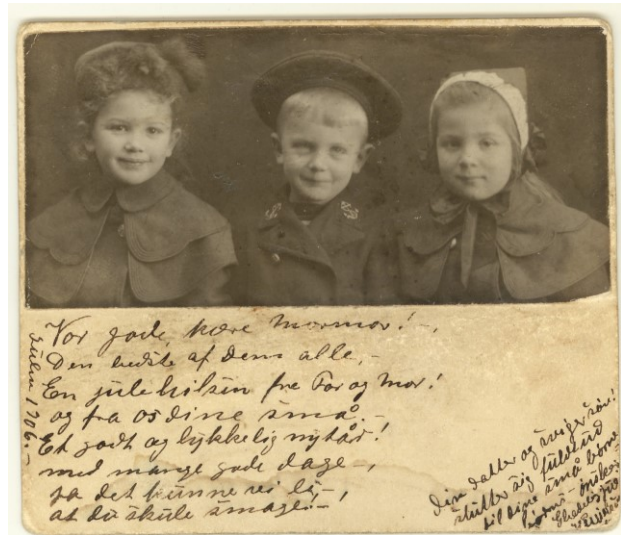 Vor gode, kære Mormor! -,
Den bedste af dem alle, -
En julehilsen fra Far og Mor!
og fra os dine små. -
Et godt og lykkelig nytår!
med mange gode dage -,
så det kunne vi li -,
at du skule smage! -
Julen 1906. -
Din datter og sviger søn!
slutter sig
til dine små børne